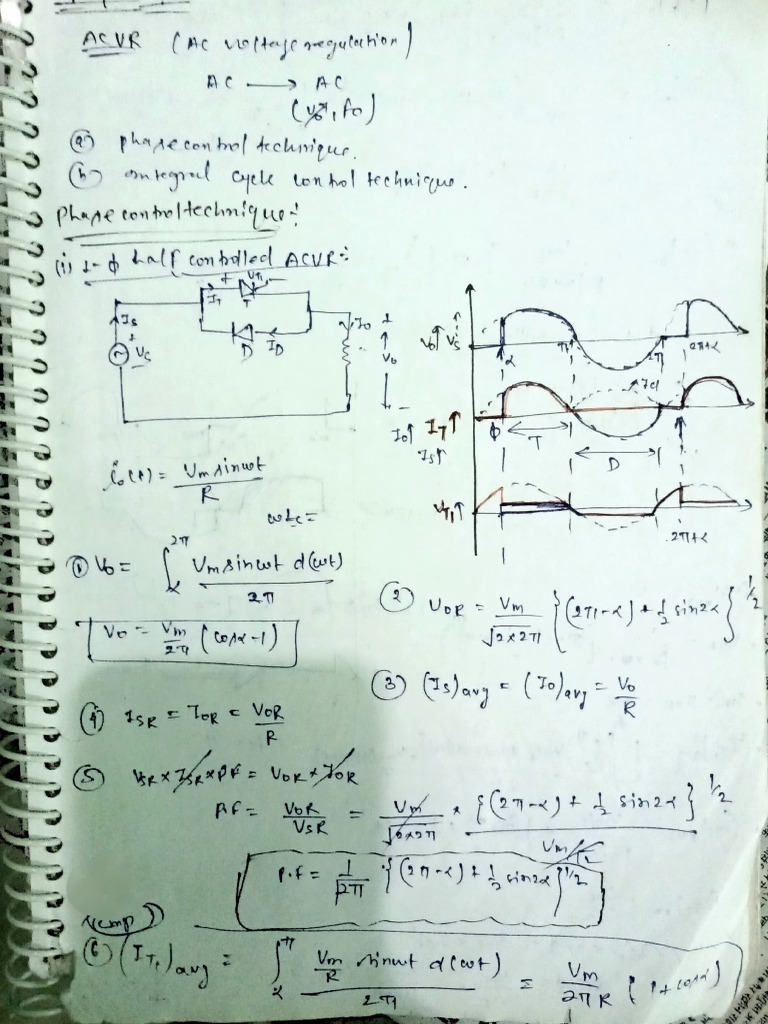 ACVR (AC voltage regulation)
AC → AC
(V₀, f₀)
(a) phase control technique.
(b) integral cycle control technique.
phase control technique:
(i) 1-ϕ half controlled ACVR:
+ VT₁ -
IT T
Is
+
Vs
D ID
I₀ +
V₀
-
V₀↑ Vs↑
α π 2π 2π+α
I₀↑ IT↑
Is↑
T
D
VT₁↑
2π+α
i₀(t) = Vm sinωt / R
ωtc =
① V₀ = ∫ α to 2π Vm sinωt d(ωt) / 2π
V₀ = Vm/2π (cosα - 1)
② VOR = Vm/√2×2π {(2π-α) + ½ sin2α}^½
③ (Is)avg = (I₀)avg = V₀/R
④ ISR = IOR = VOR/R
⑤ VSR × ISR × PF = VOR × IOR
PF = VOR/VSR = Vm/√2×2π × {(2π-α) + ½ sin2α}^½ / Vm/√2
P.F = 1/√2π {(2π-α) + ½ sin2α}^½
⑥ (IT₁)avg = ∫ α to π Vm/R sinωt d(ωt) / 2π = Vm/2πR (1+cosα)